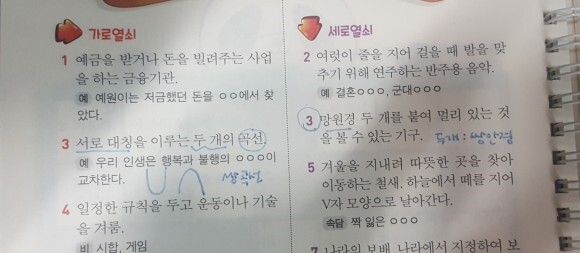 가로열쇠
1 예금을 받거나 돈을 빌려주는 사업
을 하는 금융기관.
예 예원이는 저금했던 돈을 ㅇㅇ에서 찾
았다.
3 서로 대칭을 이루는 두 개의 곡선.
예 우리 인생은 행복과 불행의 ㅇㅇㅇ이
교차한다.
쌍곡선
4 일정한 규칙을 두고 운동이나 기술
을 겨룸.
비 시합, 게임
세로열쇠
2 여럿이 줄을 지어 걸을 때 발을 맞
추기 위해 연주하는 반주용 음악.
예 결혼ㅇㅇㅇ, 군대ㅇㅇㅇ
3 망원경 두 개를 붙여 멀리 있는 것
을 볼 수 있는 기구. 두개 : 쌍안경
5 겨울을 지내려 따뜻한 곳을 찾아
이동하는 철새. 하늘에서 떼를 지어
V자 모양으로 날아간다.
속담 짝 잃은 ㅇㅇㅇ
7 나라의 보배. 나라에서 지정하여 보